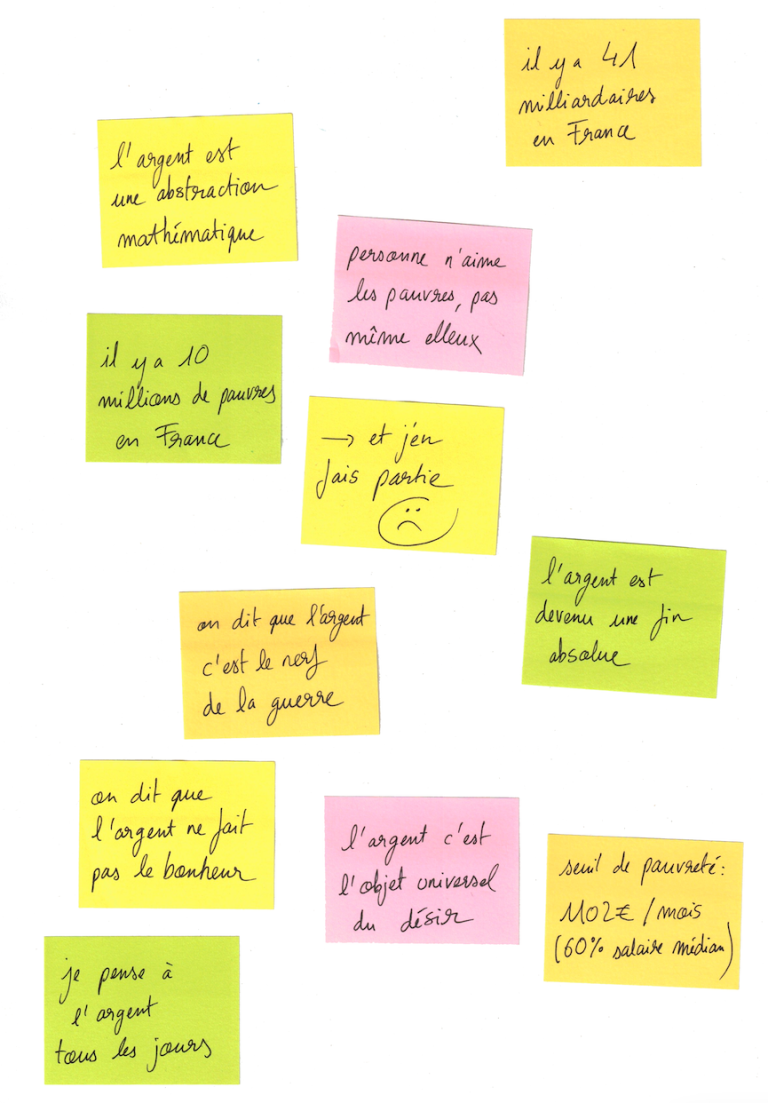 il y a 41
milliardaires
en France
l'argent est
une abstraction
mathématique
personne n'aime
les pauvres, pas
même elleux
il y a 10
millions de pauvres
en France
→ et j'en
fais partie
l'argent est
devenu une fin
absolue
on dit que l'argent
c'est le nerf
de la guerre
on dit que
l'argent ne fait
pas le bonheur
l'argent c'est
l'objet universel
du désir
seuil de pauvreté:
1102€ / mois
(60% salaire médian)
je pense à
l'argent
tous les jours